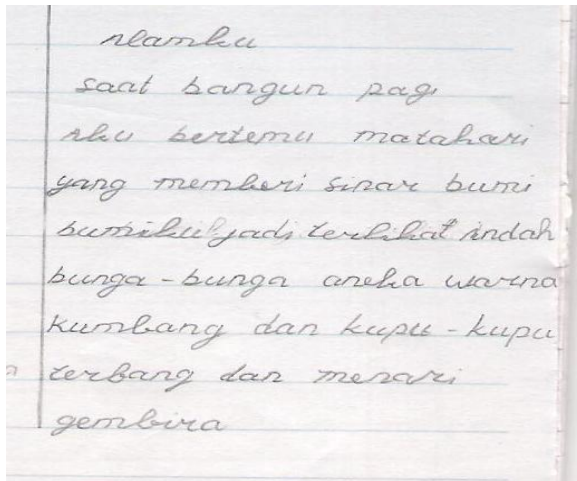 Alamku
saat bangun pagi
Aku bertemu matahari
yang memberi sinar bumi
bumiku jadi terlihat indah
bunga-bunga aneka warna
kumbang dan kupu-kupu
terbang dan menari
gembira